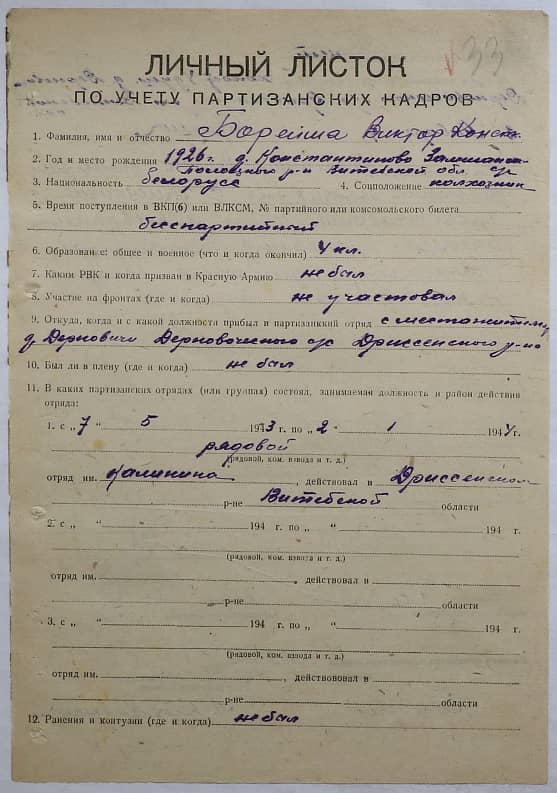 33
ЛИЧНЫЙ ЛИСТОК
ПО УЧЕТУ ПАРТИЗАНСКИХ КАДРОВ
1. Фамилия, имя и отчество Борейша Виктор Конст.
2. Год и место рождения 1926 г. д. Константиново
Полоцкого р-н Витебской обл с/с
3. Национальность белорусс 4. Соцположение колхозник
5. Время поступления в ВКП(б) или ВЛКСМ, № партийного или комсомольского билета
беспартийный
6. Образование: общее и военное (что и когда окончил) 4 кл.
7. Каким РВК и когда призван в Красную Армию не был
8. Участие на фронтах (где и когда) не участовал
9. Откуда, когда и с какой должности прибыл в партизанский отряд с местажительс
д. Дерновичи Дерновического с/с Дриссенского р-на
10. Был ли в плену (где и когда) не был
11. В каких партизанских отрядах (или группах) состоял, занимаемая должность и район действия
отряда:
1. с „ 7 “ 5 1943 г. по „ 2 “ 1 1944 г.
рядовой
(рядовой, ком. взвода и т. д.)
отряд им. Калинина, действовал в Дриссенском
р-не Витебской области
2. с „ “ 194 г. по „ “ 194 г.
(рядовой, ком. взвода и т. д.)
отряд им. , действовал в
р-не области
3. с „ “ 194 г. по „ “ 194 г.
(рядовой, ком. взвода и т. д.)
отряд им. , действововал в
р-не области
12. Ранения и контузии (где и когда) не был